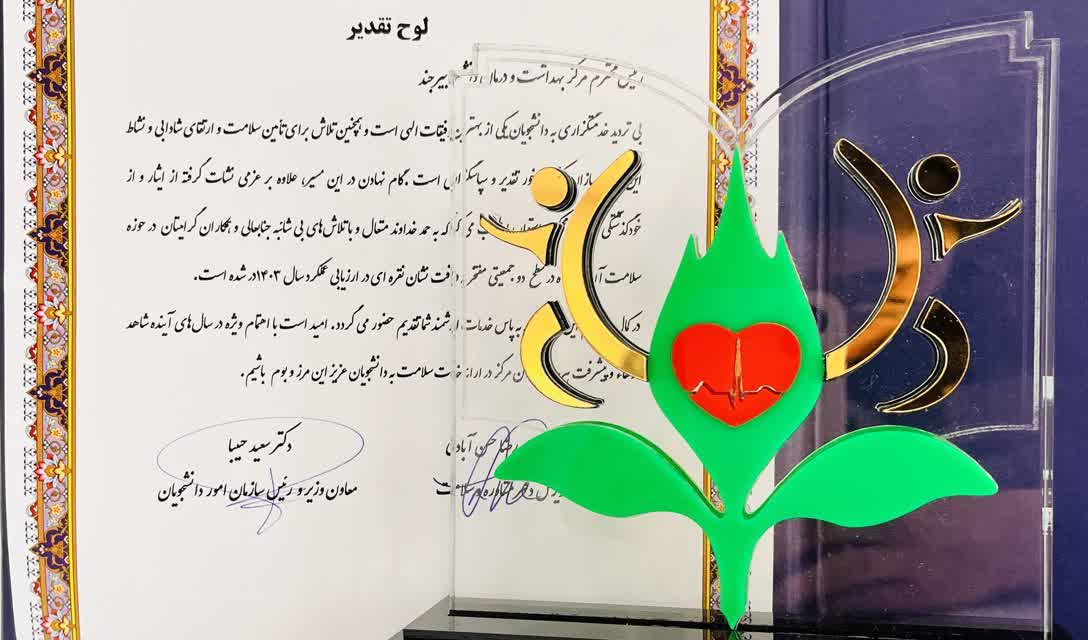 لوح تقدیر
رییس محترم مرکز بهداشت و درمان بیرجند
بی تردید خدمتگزاری به دانشجویان یکی از بهترین توفیقات الهی است و همچنین تلاش برای تأمین سلامت و ارتقای شادابی و نشاط
این تقدیر و سپاسگزاری است. گام نهادن در این مسیر، علاوه بر عزمی نشات گرفته از ایثار و از
خودگذشتگی که به حمد خداوند متعال و با تلاش‌های بی شائبه جنابعالی و همکاران گرامیتان در حوزه
سلامت در سطح دو جمعیتی مفتخر به دریافت نشان نقره ای در ارزیابی عملکرد سال ۱۴۰۳ در شده است.
در به پاس خدمات ارزشمند شما تقدیم حضور می گردد. امید است با اهتمام ویژه در سال‌های آینده شاهد
و پیشرفت مرکز در ارائه خدمات سلامت به دانشجویان عزیز این مرز و بوم باشیم.
حسن آبادی دکتر سعید حبیبا
مشاوره و سلامت معاون وزیر و رئیس سازمان امور دانشجویان